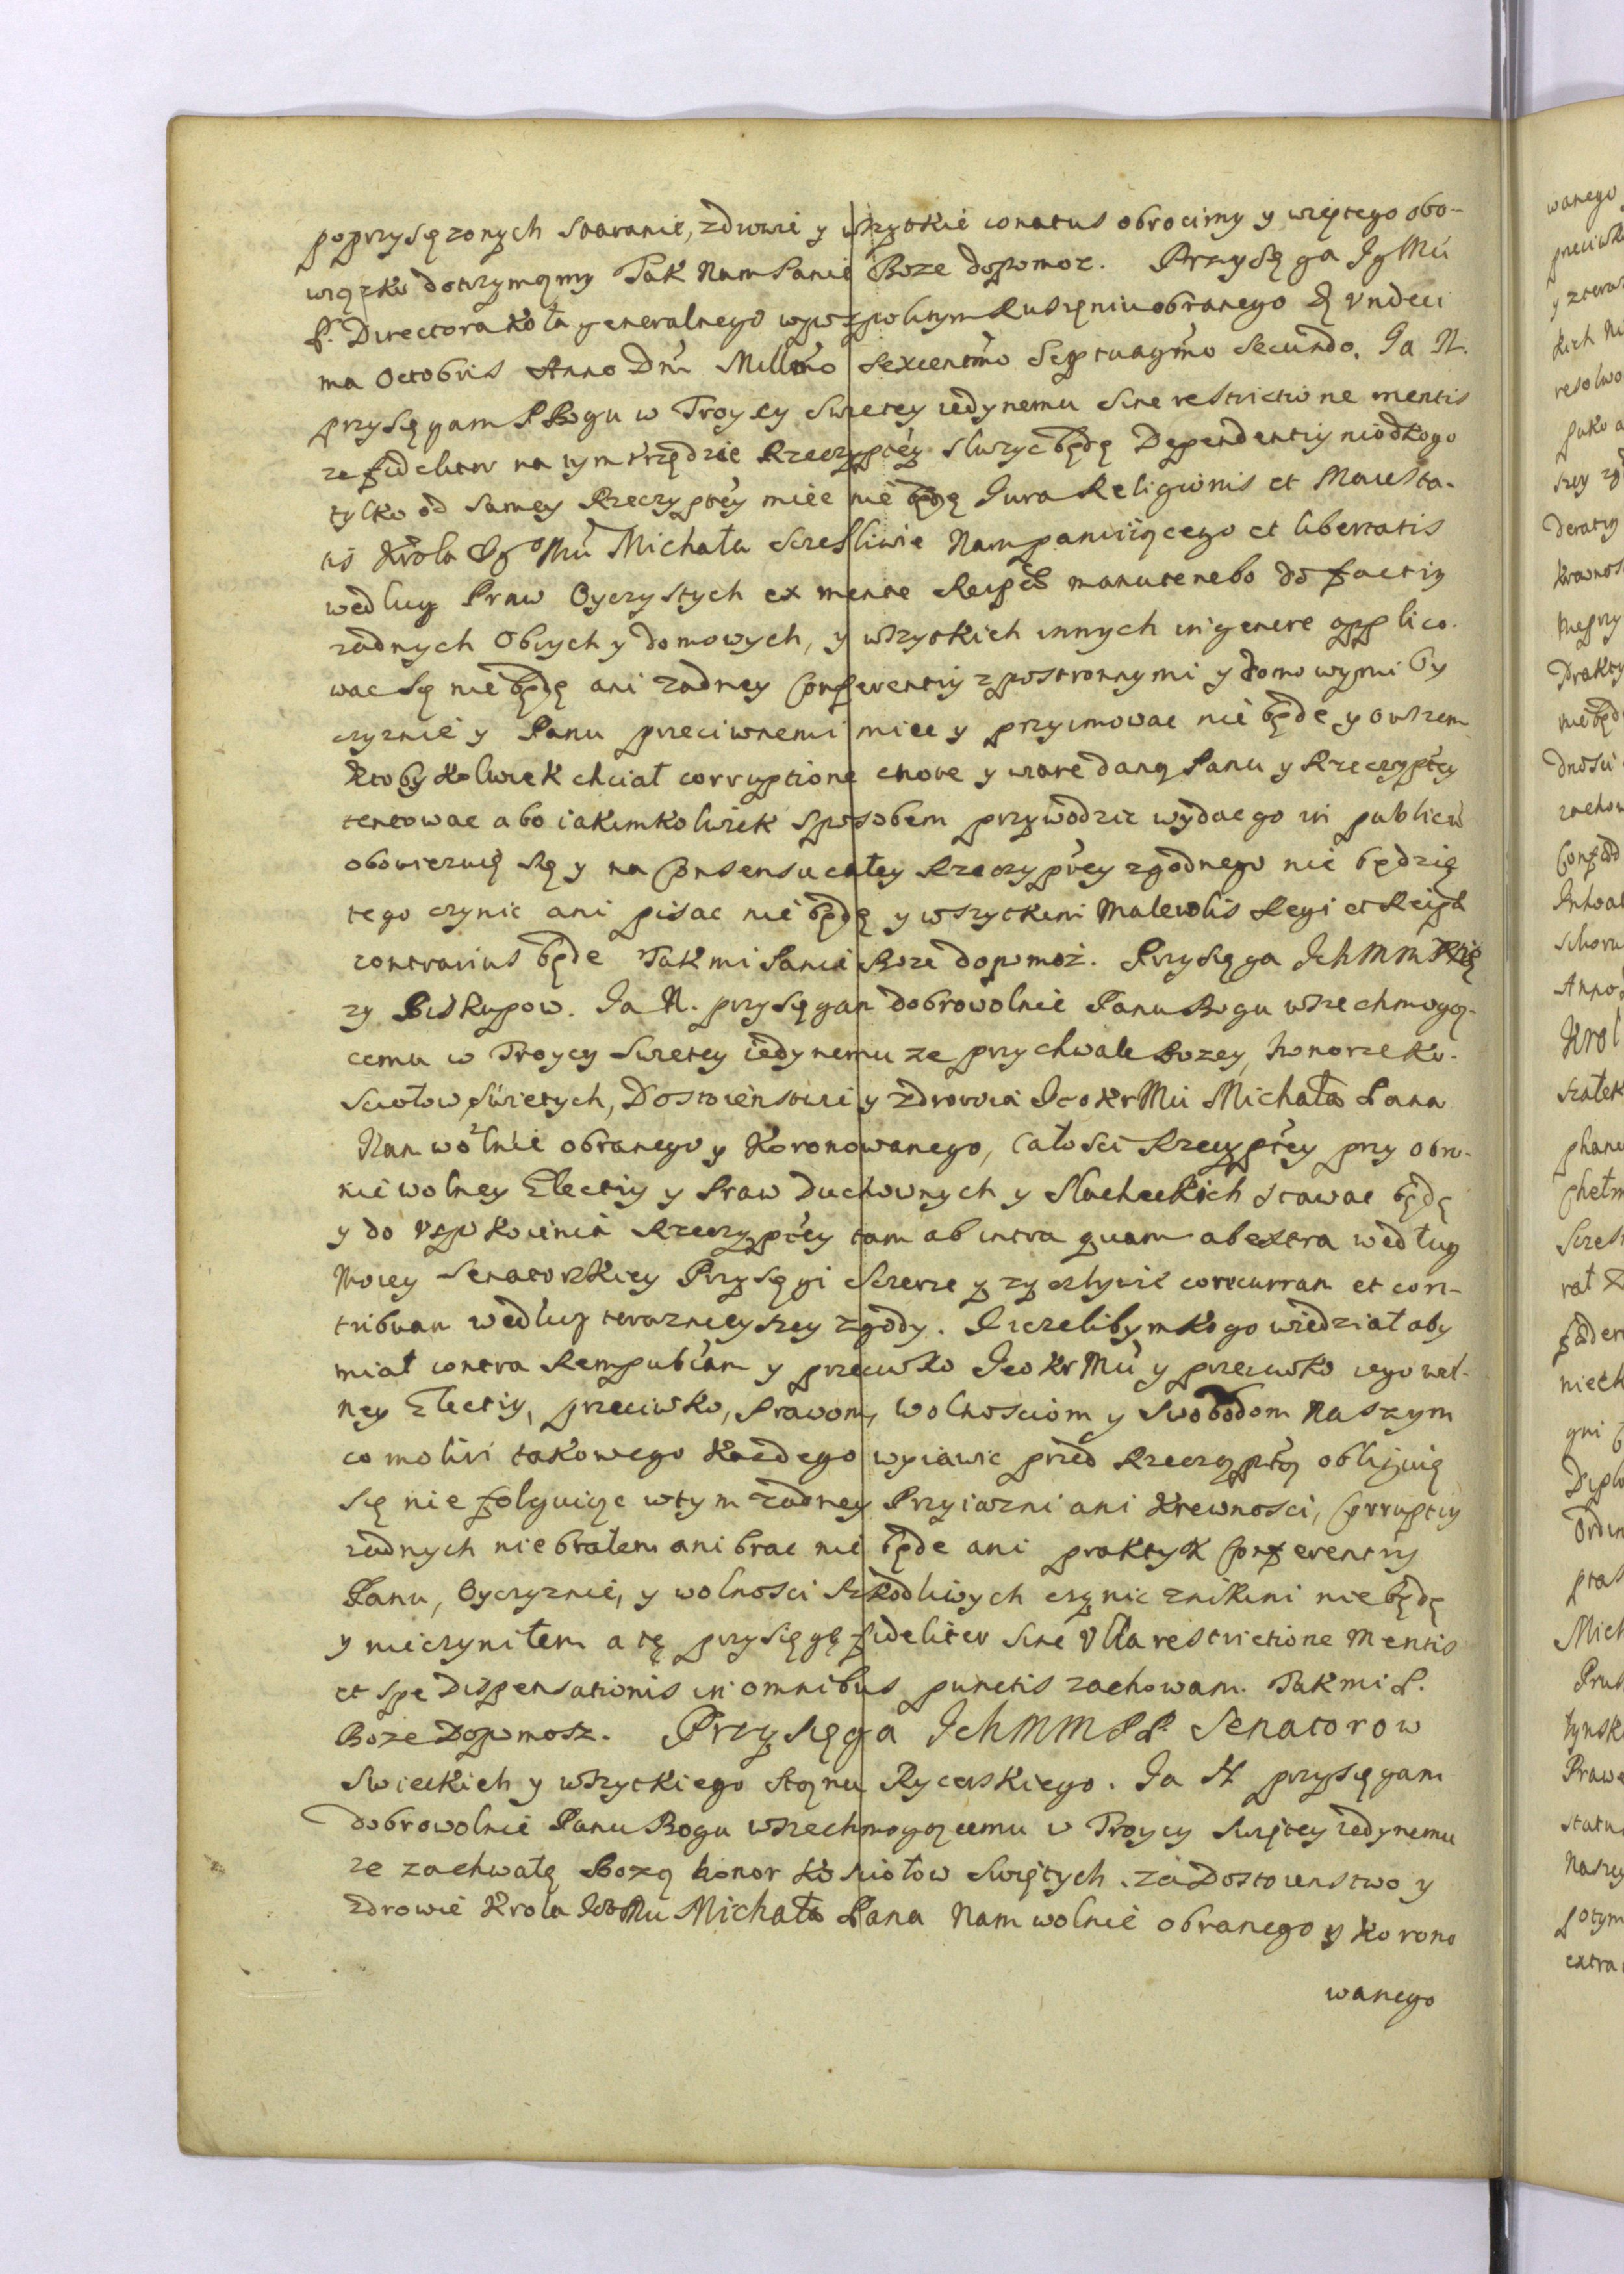 poprzysięzonych staranie, zdrowie y wszytkie conatus obrocimy y więtego obo-
wiązku dotrzymamy Tak Nam Panie Boze dopomoz. Przysięga Jg Mci
P. Directora Koła generalnego w pospolitym Ruszęniu obranego D Vndeci
ma Octobris Anno Dni Millmo Sexcentmo Septuagmo Secundo. Ja N.
przysięgam P Bogu w Troycy Swietey iedynemu sine restrictione mentis
ze fideliter na tym Vrzędzie Rzeczyptey słuzyc będę Dependentiy niodkogo
tylko od Samey Rzeczyptey miec nie będę Jura Religionis et Maiesta-
tis Krola Jgo Mci Michała Szczesliwie Nam panuiącego et libertatis
według Praw Oyczystych ex mente Reipcae manutenebo do factiy
zadnych Obcych y domowych, y wszytkich innych in genere applico-
wac się nie będę ani zadney Conferentiy z postronnymi y domowymi Oy
czyznie y Panu przeciwnemi miec y przyimowac nie będe y owszem
Ktoby Kolwiek chciał corruptione cnote y wiare daną Panu y Rzeczyptey
tentowac abo iakimkolwiek sposobem przywodzic wydac go in publicu
obowiezuię się y na Consensu całey Rzeczyptey zgodnego nie będzie
tego czynic ani pisac nie będę y wszytkim Malevolis Regi et Reipb
contrarius będe Tak mi Panie Boze dopomoz. Przysięga JchMM Xię
zy Biskupow. Ja N. przysięgam dobrowolnie Panu Bogu wszechmogą-
cemu w Troycy Swietey iedynemu ze przy chwale Bozey, honorze Ko-
sciołow Swietych, Dostoienstwie y zdrowia Jeo Kr Mci Michała Pana
Nam wolnie obranego y Koronowanego, Całosci Rzeczyptey przy obro-
nie wolney Electiy y Praw Duchownych y Slacheckich stawac będę
y do Vspokoienia Rzeczyptey tam ab intra quam ab extra według
Moiey Senatorskiey Przysięgi Szczerze y zyczliwie concurram et con-
tribuam według teraznieyszey zgody. Jeczelibym Kogo wiedział aby
miał contra Rempubcam y przeciwko Jeo Kr Mci y przeciwko iego wol-
ney Electiy, przeciwko, Prawom, Wolnosciom y Swobodom Naszym
co moliri takowego Kazdego wyiawic przed Rzecząptą obliguię
się nie folguiąc w tym zadney Przyiazni ani Krewnosci, Corruptiy
zadnych nie brałem ani brac nie będe ani praktyk Conferentiy
Panu, Oyczyznie, y wolnosci Szkodliwych czynic znikim nie będę
y nie czyniłem a tę przysięgę fideliter sine Vlla restrictione Mentis
et spe Dispensationis in omnibus punctis zachowam. Tak mi P.
Boze Dopomosz. Przysięga JchMM PP. Senatorow
Swieckich y wszytkiego stanu Rycerskiego. Ja N przysięgam
dobrowolnie Panu Bogu wszechmogącemu w Troycy Swiętey iedynemu
ze za chwałę Bozą honor Kosciołow Swiętych. za Dostoienstwo y
zdrowie Krola Jeo Mci Michała Pana Nam wolnie obranego y Korono
wanego